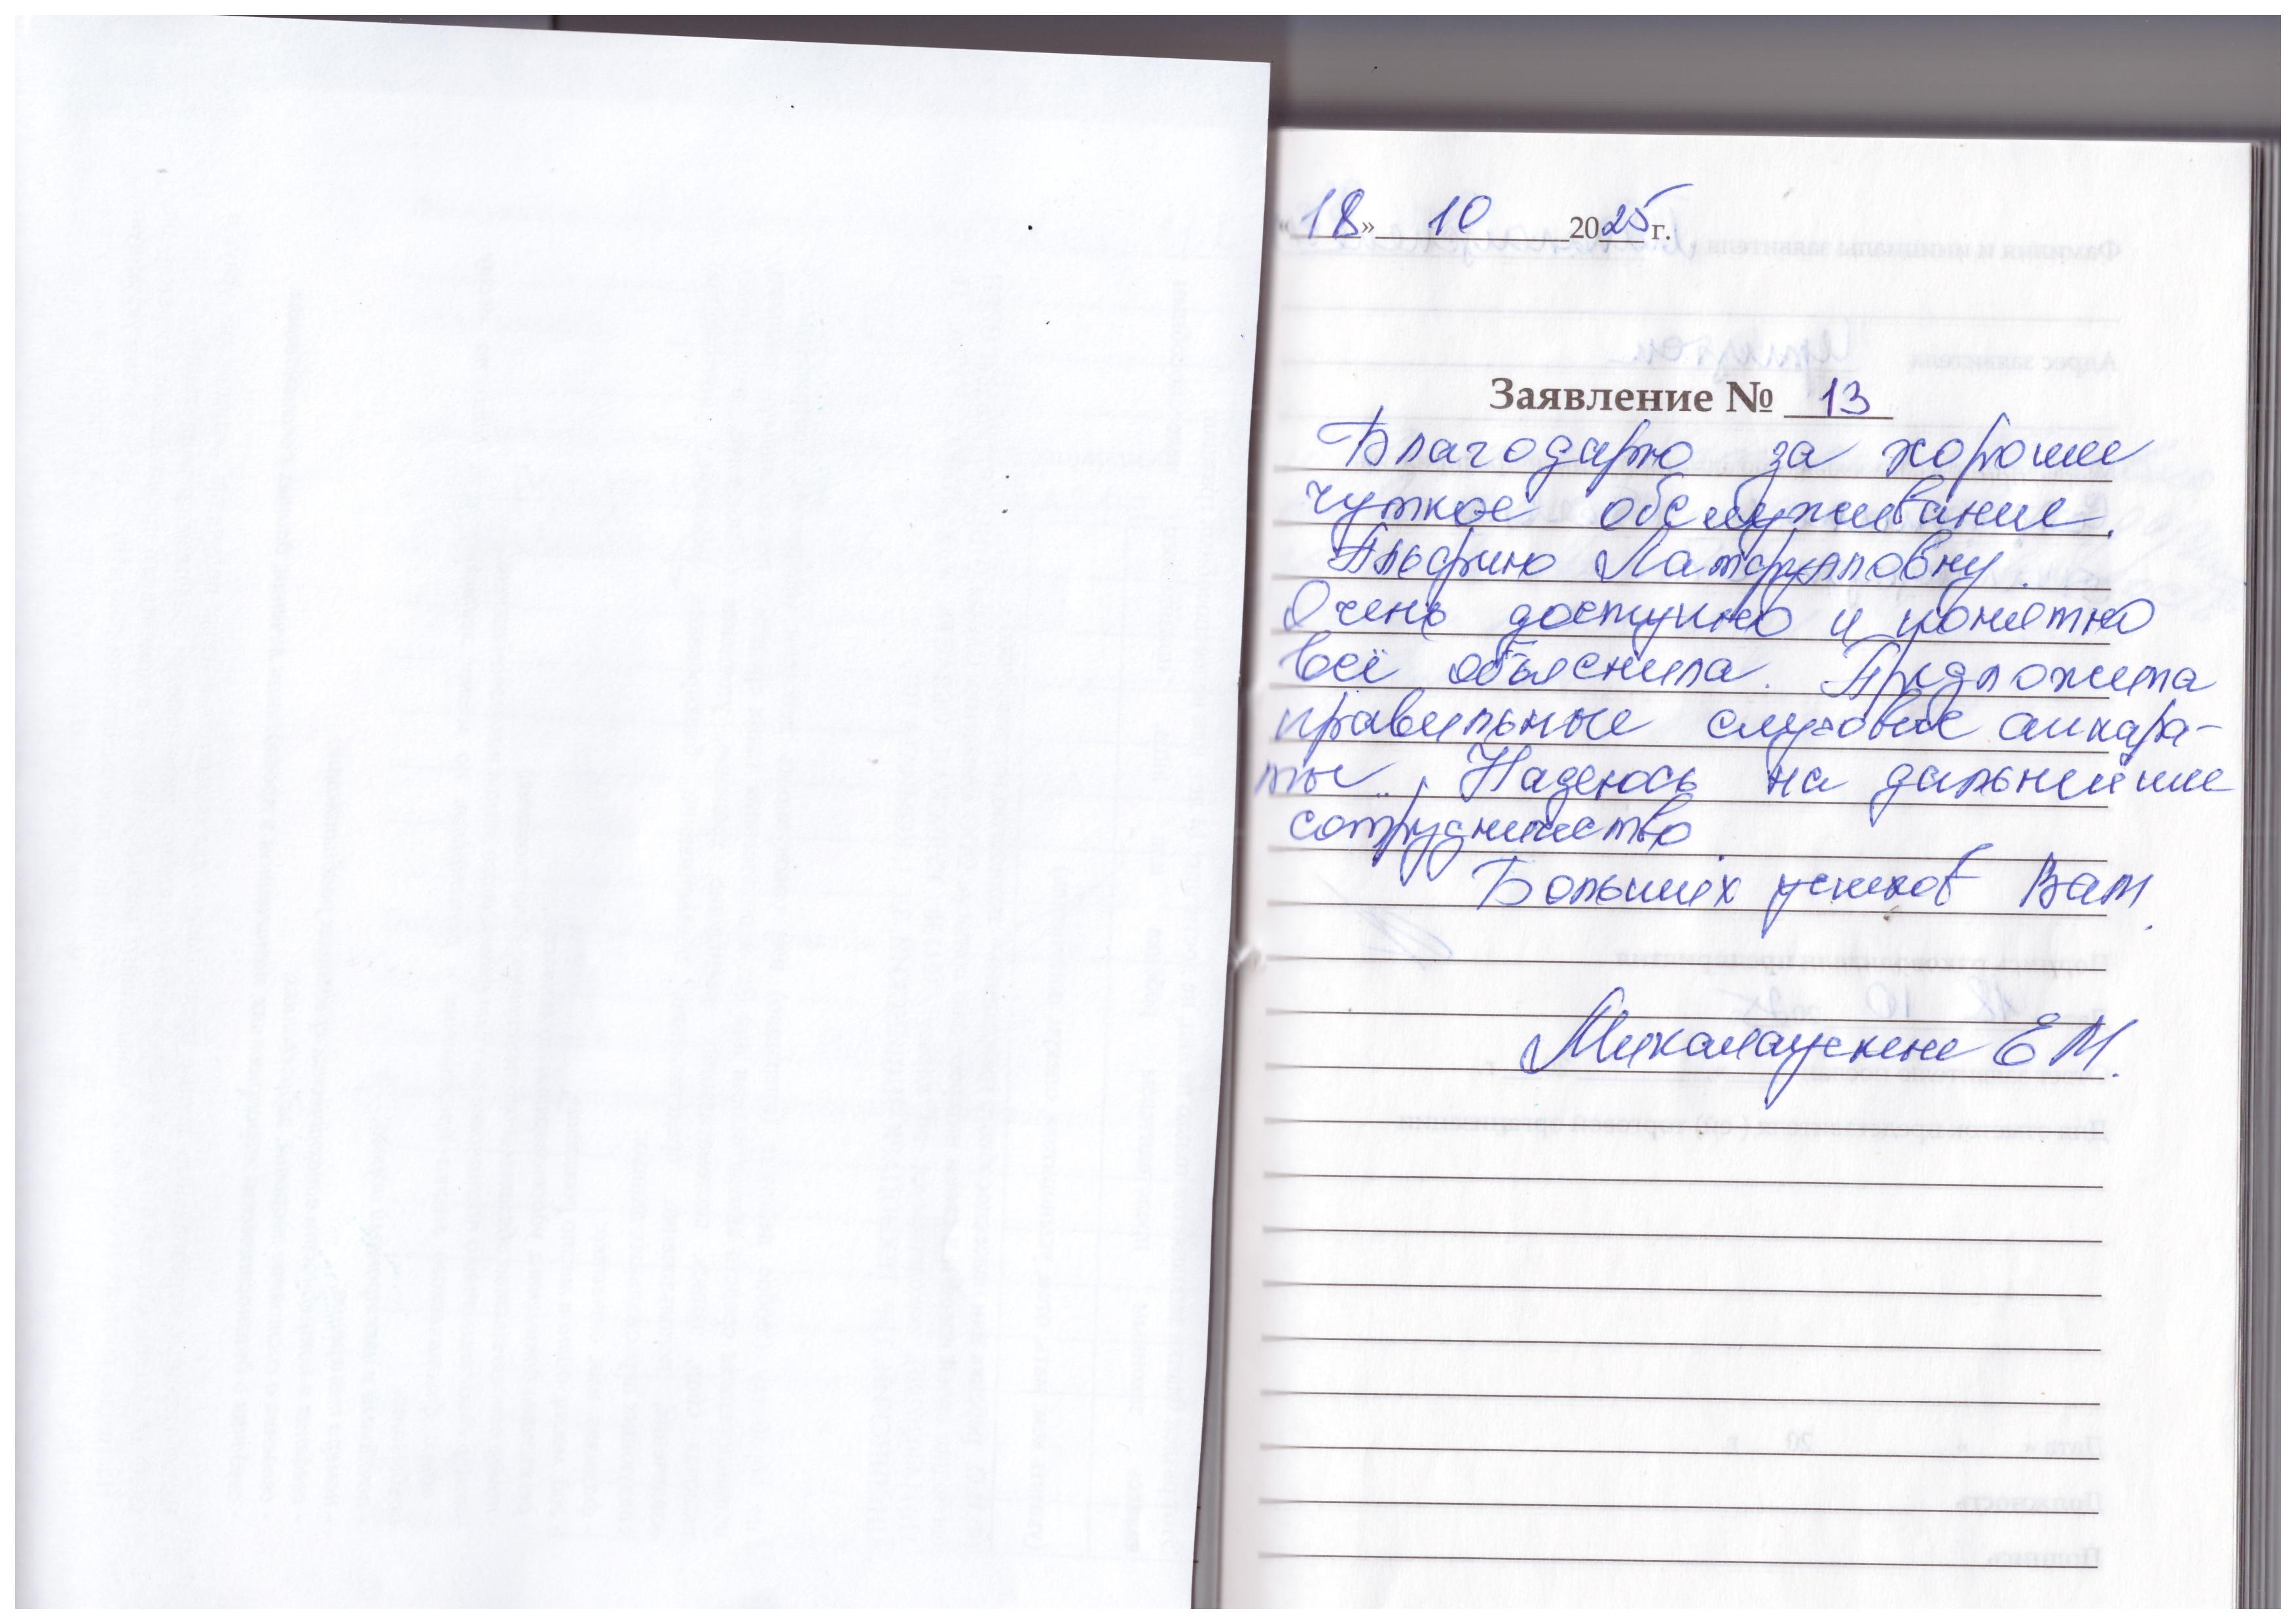 «18» 10 2025 г.
Заявление № 13
Благодарю за хорошее
чуткое обслуживание.
Альфию Латфулловну.
Очень доступно и понятно
всё объяснила. Предложила
правильные слуховые аппара-
ты. Надеюсь на дальнейшее
сотрудничество.
Больших успехов Вам.
Микалаускене Е М.